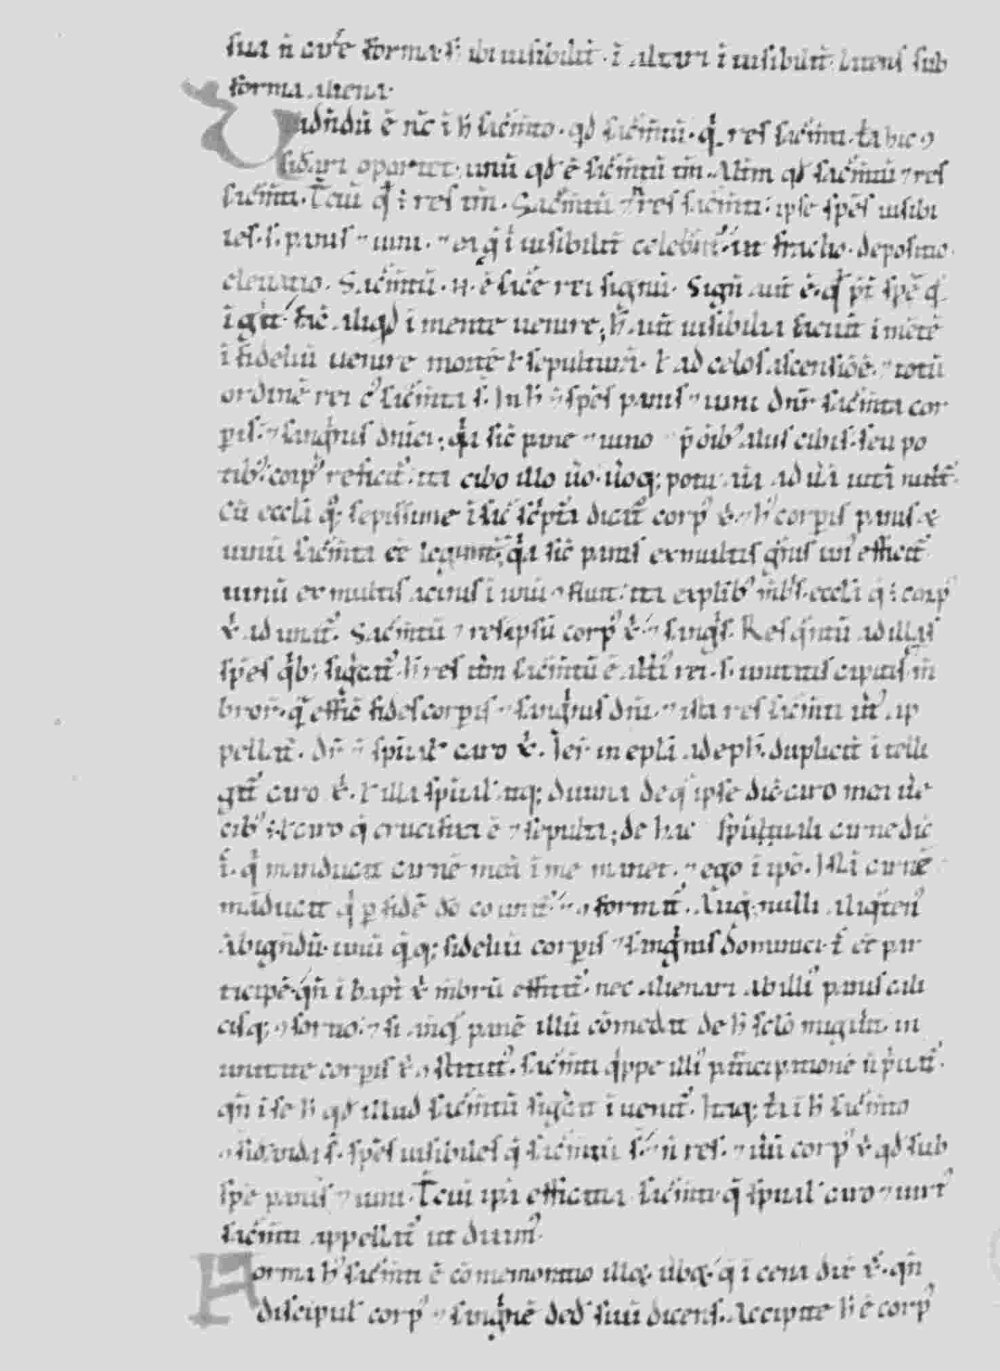 sua ñ aut̃e forma. s; ibi uisibilit̃. ĩ altari ĩuisibilit̃. latens sub
forma aliena.
Uidẽdũ ẽ nc̃ ĩ h̃ sac̃mto. qđ sac̃mtũ. q̃ res sac̃mti. t̃a hic ɔ
sid̃ari oportet. unũ qđ ẽ sac̃mtũ tm̃. Altm̃ qđ sac̃mtũ ⁊ res
sac̃mti. T̃ciũ q̃ ÷ res tm̃. Sac̃mtũ ⁊ ñ res sac̃mti: ipse sp̃es uisibi
les. s. panis ⁊ uini. ⁊ ea q̃ ĩ uisibilit̃ celeb̃nt̃. ut fractio. depositio.
eleuatio. Sac̃mtũ. n. ẽ sac̃e rei signũ. Signũ aut̃ ẽ. q̃ p̃t sp̃ẽ q̃
ĩg̃it. fac̃ aliqđ ĩ mente uenire; h̃ aut̃ uisibilia faciũt ĩ mẽtẽ
ĩfideliũ uenire mortẽ ł sepulturã. ł ad celos ascensiõẽ. ⁊ totũ
ordinẽ rei cꝰ sac̃mta s̃. In h̃ ⁊ sp̃es panis ⁊ uini dñr sac̃mta cor
pis. ⁊ sanguis dñici: q̃a sic̃ pane ⁊ uino p̃ oĩbꝰ aliis cibis. seu po
tibꝰ. corpꝰ reficit̃. ita cibo illo ũo. ũoq; potu aĩa ad ũã uitã nutt̃.
Cũ eccl̃a q̃q; sepissime ĩ sac̃ sc̃pt̃a dicat̃ corpꝰ x̃. ⁊ h̃ corpis panis &
uinũ sac̃mta eẽ legunt̃; q̃a sic̃ panis ex multis g̃nis unꝰ efficit̃
uinũ ex multis acinis ĩ unũ ɔfluit: ita ex plibꝰ mb̃s. eccl̃a q̃ ÷ corpꝰ
x̃ adunat̃. Sac̃mtũ ⁊ res ipsũ corpꝰ x̃. ⁊ sanguis. Res q̃ntũ ad illas
sp̃es q̃bꝰ; sig̃cat̃. h̃ res tm̃ sac̃mtũ ẽ altiꝰ rei. s. unitatis capitis. m̃
bror̃. q̃ effic̃ fides corpis ⁊ sanguis dñi. ⁊ ista res sac̃mti uñ ap
pellat̃. dr̃ ⁊ sp̃ual̃ caro x̃. Ier̃ in epl̃a ad eph̃. duplicit̃ ĩtelli
git̃ caro x̃. ł illa sp̃ual̃ atq; diuina de q̃ ipse dic̃. caro mea ũe
cibꝰ ÷ ł caro q̃ crucifixa ẽ ⁊ sepulta; de hac sp̃ituali carne dic̃
ĩ. q̃ manducat carnẽ meã ĩ me manet. ⁊ ego ĩ ip̃o. Nã carnẽ
mãducat q̃ p fidẽ đo counit̃. ⁊ ɔformat̃. Aug̃. nulli aliq̃tenꝰ
Abigẽdũ. unũ q̃q; fideliũ corpis ⁊ sanguis dominici. t̃ eẽ par
ticipẽ. q̃ñ ĩ bapt̃ x̃ mb̃rũ effitit̃. nec alienari ab illiꝰ panis cali
cisq; ɔsortio. ⁊ si anq̃ panẽ illũ cõmedat de h̃ sc̃lo migr̃it. in
unitate corpis x̃ ɔstitutꝰ. Sac̃mti q̃ppe illiꝰ p̃ticipationẽ ñ p̃uat̃.
q̃ñ ĩ se h̃ qđ illud sac̃mtũ sig̃cat ĩuenit̃. Itaq; t̃a ĩ h̃ sac̃mto
ɔsid̃anda s̃. sp̃es uisibiles q̃ sac̃mtũ s̃. ⁊ ñ res. ⁊ uũ corpꝰ x̃ qđ sub
sp̃ẽ panis ⁊ uini. T̃ciũ ip̃a efficatia sac̃mti. q̃ sp̃ual̃ caro ⁊ uirtꝰ
sac̃mti appellat̃ ut diximꝰ.
Forma h̃ꝰ sac̃mti ẽ cõmemoratio illoꝝ ũboꝝ. q̃ ĩ cena dix̃ x̃. q̃ñ
discipul̃ corpꝰ ⁊ sanguinẽ ded̃ suũ dicens. Accipite h̃ ẽ corpꝰ